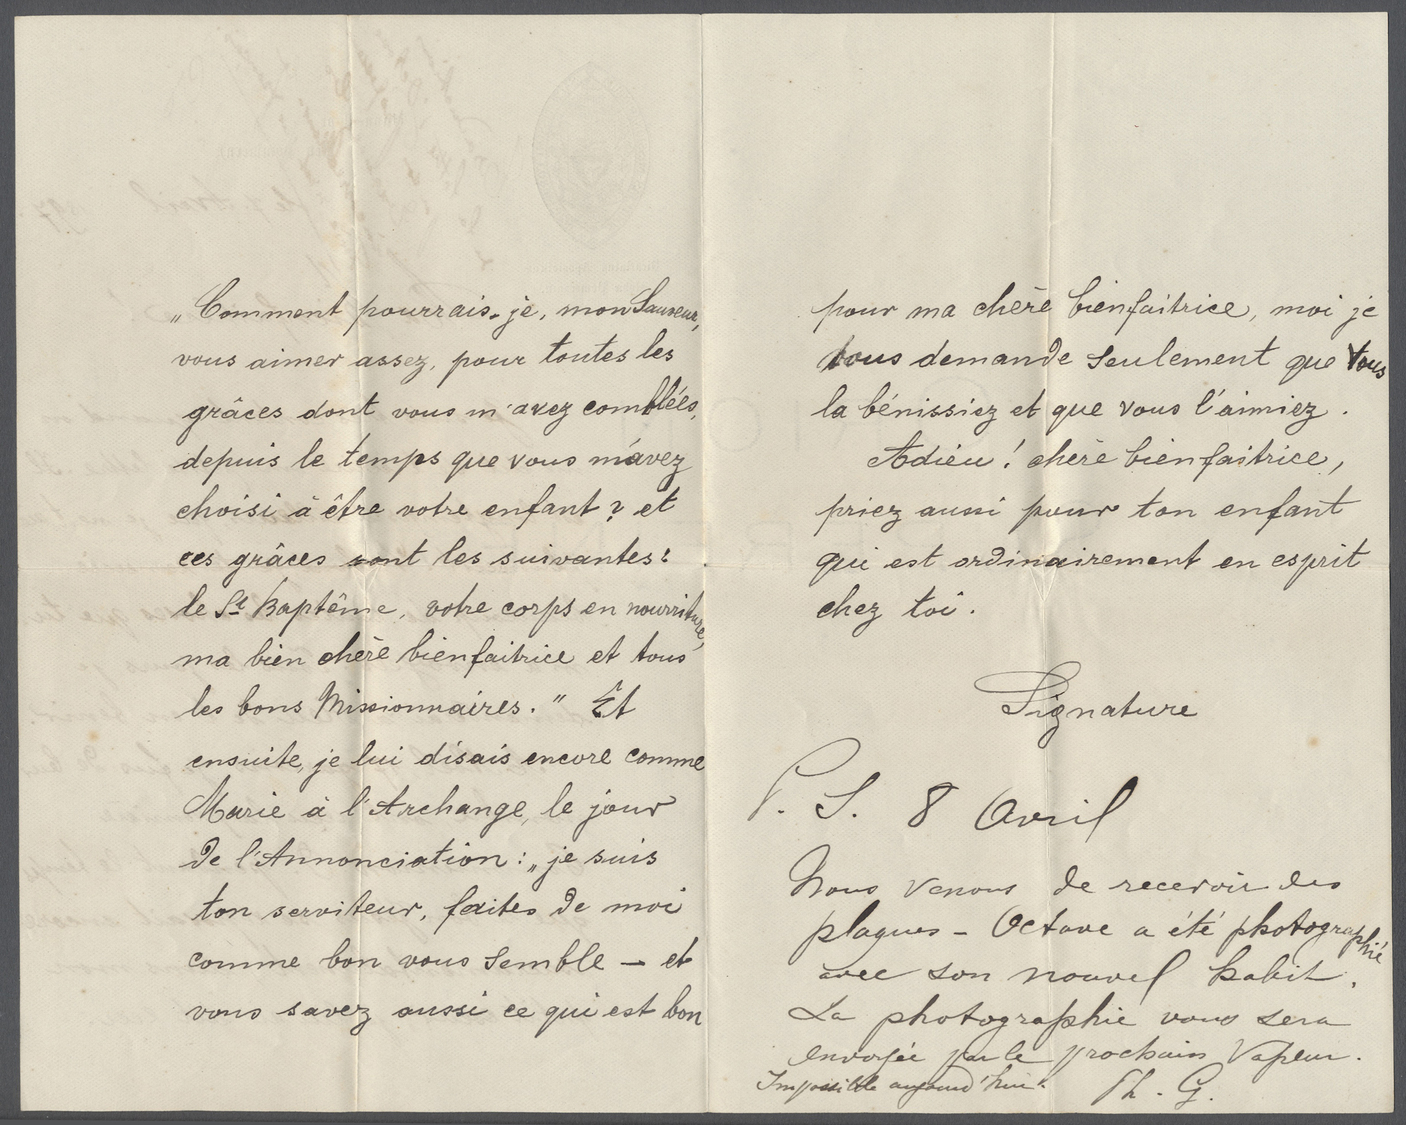 „Comment pourrais-je, mon Sauveur,
vous aimer assez, pour toutes les
grâces dont vous m'avez comblées,
depuis le temps que vous m'avez
choisi à être votre enfant ? et
ces grâces sont les suivantes :
le St Baptême, votre corps en nourriture,
ma bien chère bienfaitrice et tous
les bons Missionnaires." Et
ensuite, je lui disais encore comme
Marie à l'Archange, le jour
de l'Annonciation : „je suis
ton serviteur, faites de moi
comme bon vous semble — et
vous savez aussi ce qui est bon
pour ma chère bienfaitrice, moi je
vous demande seulement que vous
la bénissiez et que vous l'aimiez.
Adieu ! chère bienfaitrice,
priez aussi pour ton enfant
qui est ordinairement en esprit
chez toi.
Signature
P. S. 8 Avril
Nous venons de recevoir des
plaques - Octave a été photographié
avec son nouvel habit.
La photographie vous sera
envoyée par le prochain vapeur.
Impossible aujourd'hui. Ph. G.